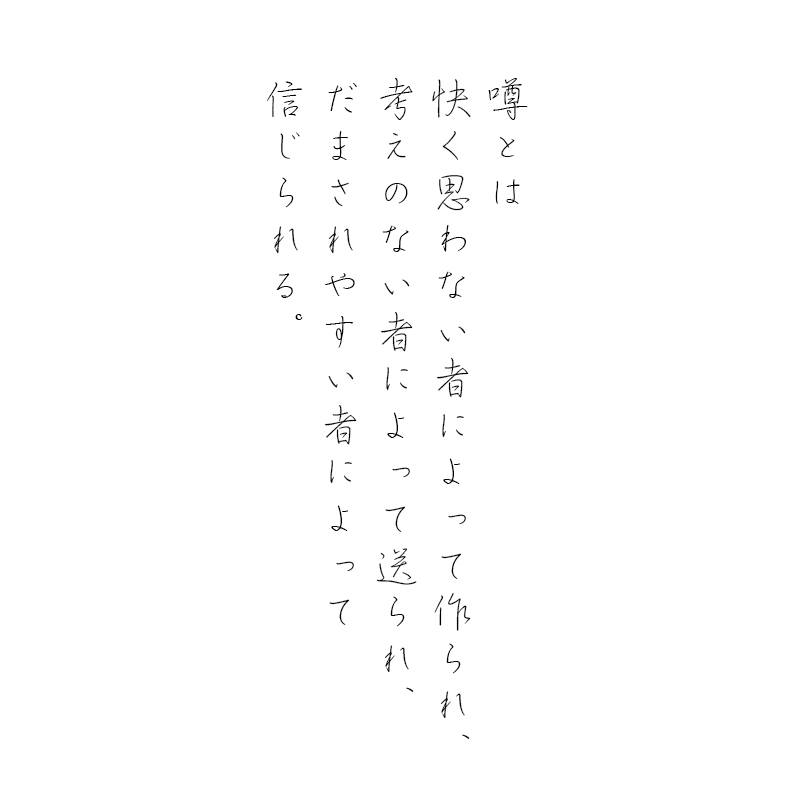 噂とは
快く思わない者によって作られ、
考えのない者によって送られ、
だまされやすい者によって
信じられる。